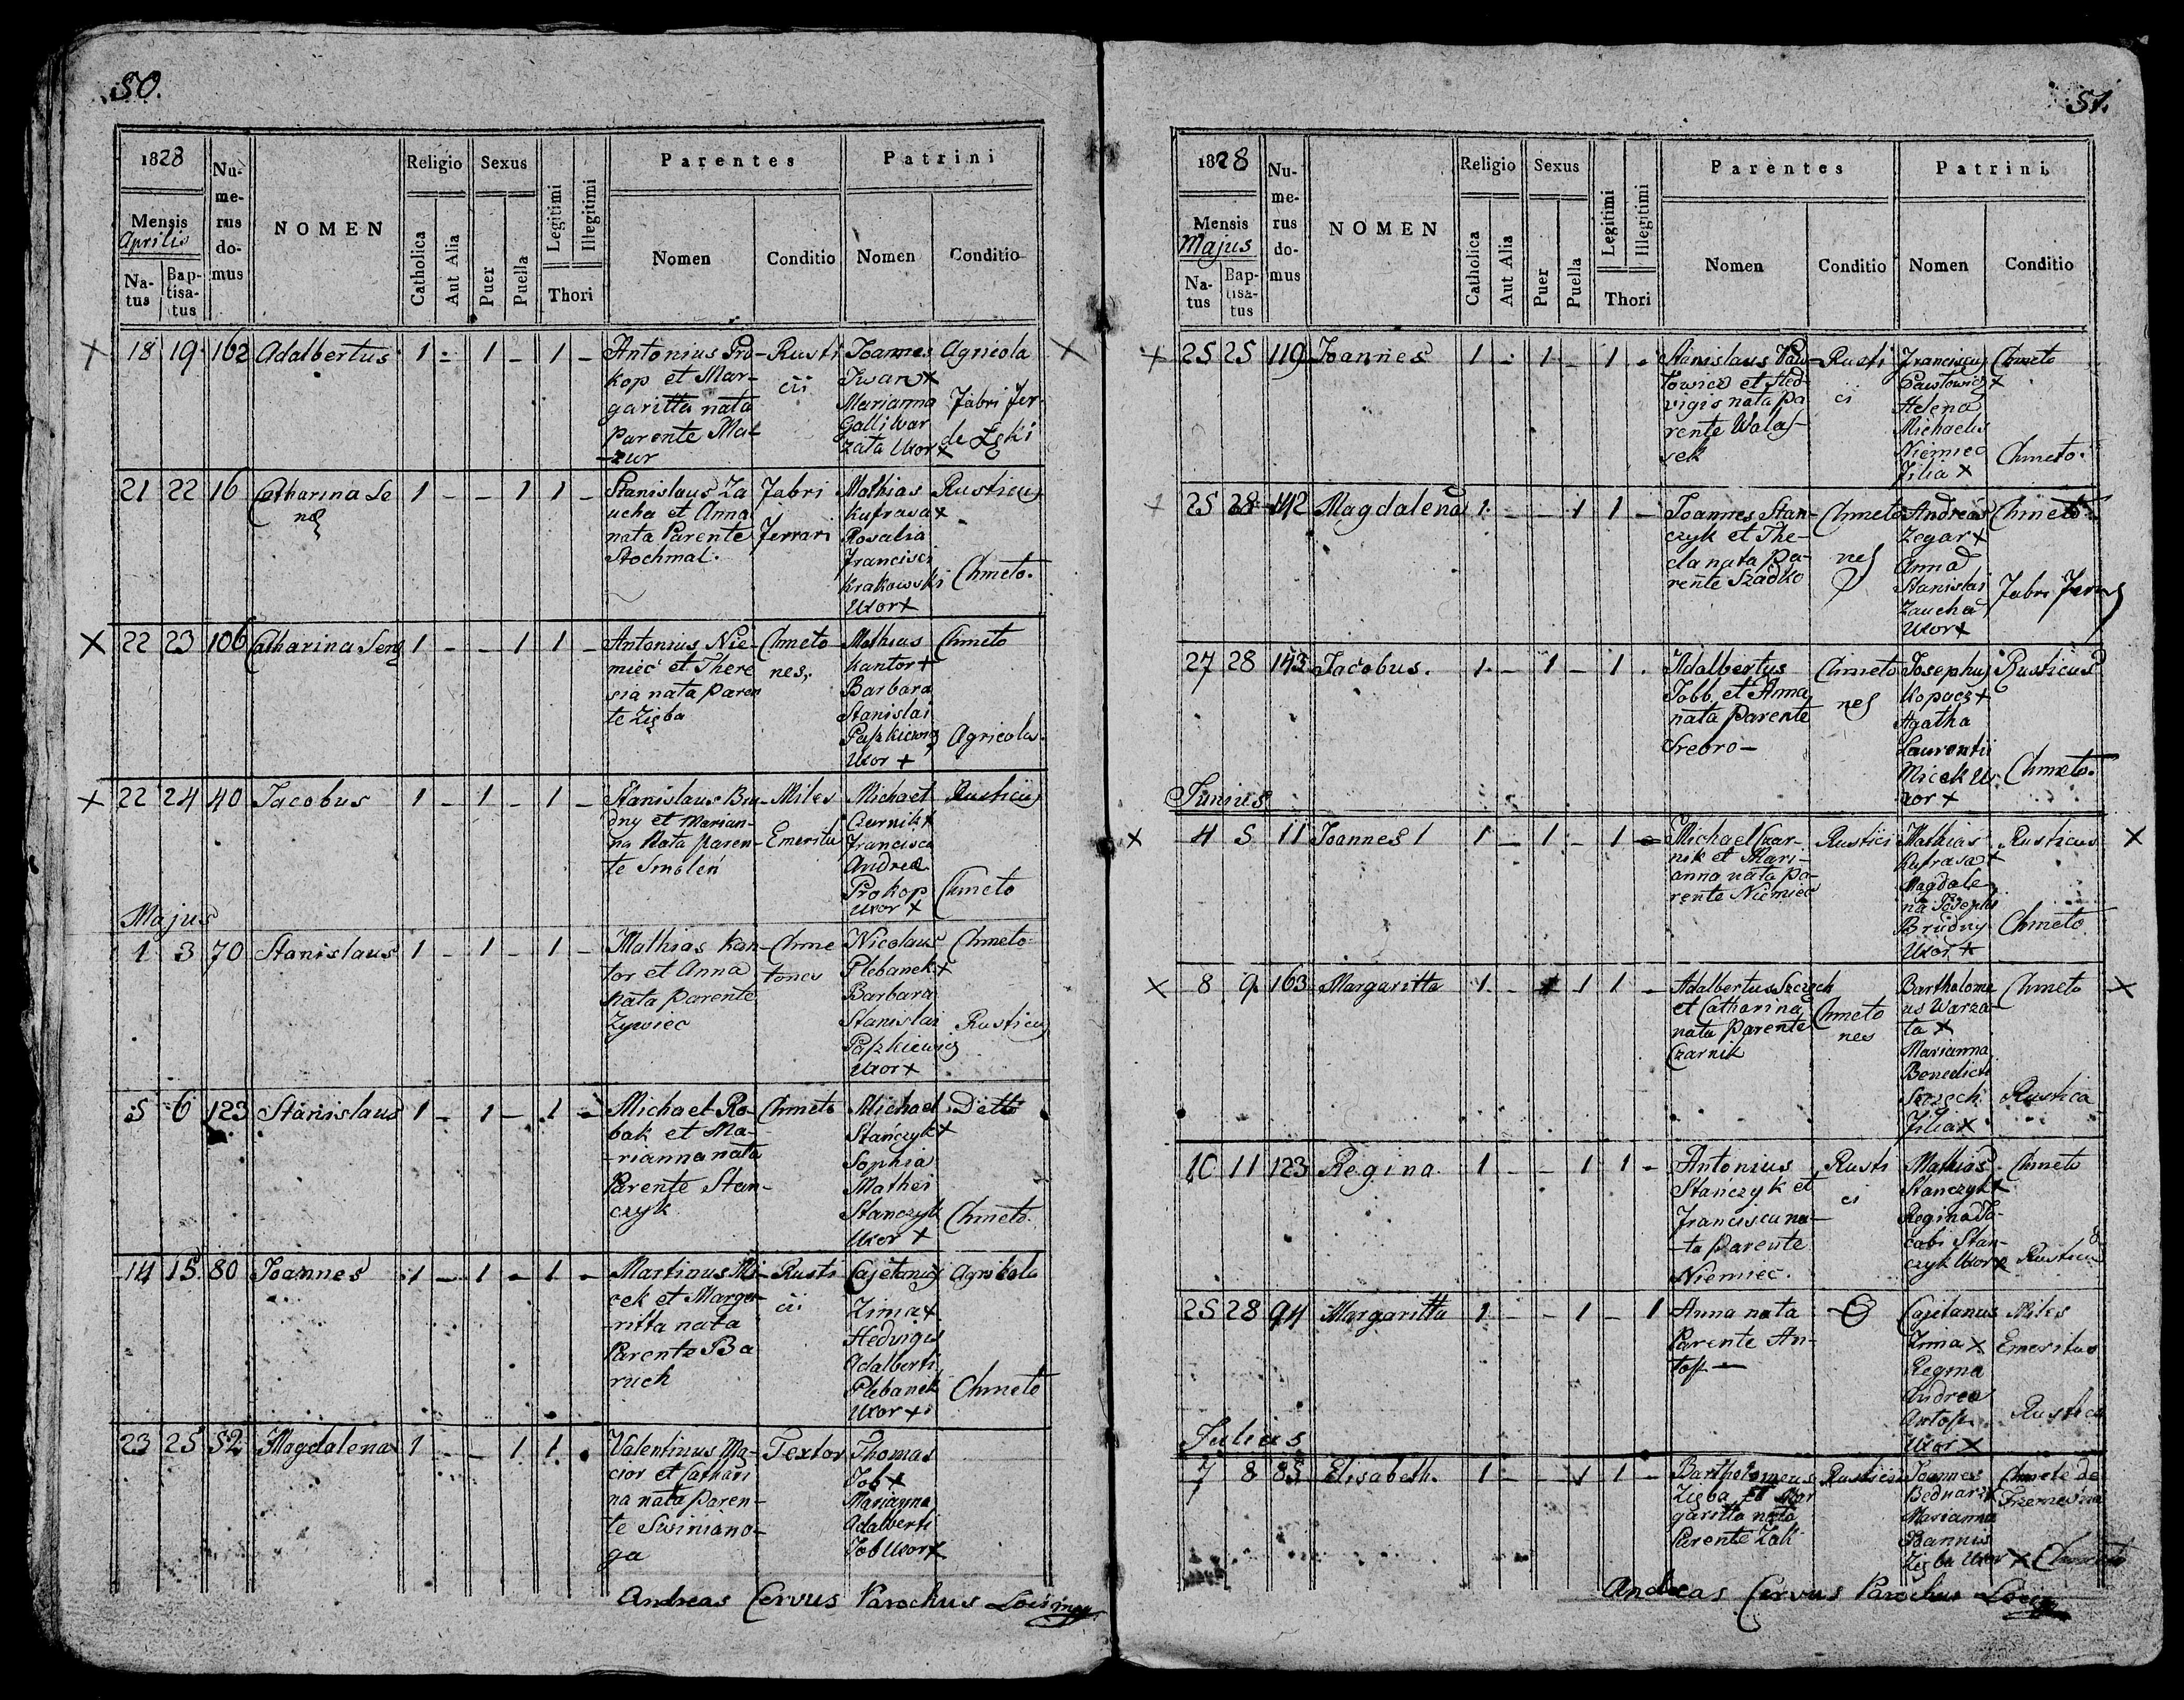 50.
1828
Mensis
Aprilis
Na-
tus
Bap-
tisa-
tus
Nu-
me-
rus
do-
mus
NOMEN
Religio
Catholica
Aut Alia
Sexus
Puer
Puella
Legitimi
Illegitimi
Thori
Parentes
Nomen
Conditio
Patrini
Nomen
Conditio
X 18 19 162 Adalbertus 1 - 1 - 1 -
Antonius Pro-
kop et Mar-
garitta nata
Parente Ma-
-zur
Rusti
cii
Joannes
Iwan x
Marianna
Galli War
zata Uxor x
Agricola X
Fabri Fer-
de Łęki
21 22 16 Catharina Se
1 - - 1 1 -
Stanislaus Za
ucha et Anna
nata Parente
Stochmal.
Fabri
Ferrari
Mathias
Kufrasa x
Rosalia
Francisci
Krakowski
Uxor x
Rusticus
Chmeto.
X 22 23 106 Catharina Sen
1 - - 1 1 -
Antonius Nie-
miec et There
sia nata paren
te Zięba
Chmeto
nes,
Mathias
Kantor +
Barbara
Stanislai
Paszkiewicz
Uxor +
Chmeto
Agricola.
X 22 24 40 Jacobus 1 - 1 - 1 -
Stanislaus Bru-
dny et Marian-
na Nata paren-
te Smoleń
Miles
Emeritus
Michael
Czernik x
Francisca
Andrea
Prokop
Uxor x
Rusticus
Chmeto
Majus
1 3 70 Stanislaus 1 - 1 - 1 -
Mathias Kan-
tor et Anna
Nata parente
Zywiec
Chme
tones
Nicolaus
Plebanek x
Barbara
Stanislai
Paszkiewicz
Uxor x
Chmeto
Rusticus
5 6 123 Stanislaus 1 - 1 - 1 -
Michael Ro-
bak et Ma-
-rianna nata
Parente Stan-
czyk
Chmeto
Michael
Stańczyk x
Sophia
Mathei
Stanczyk
Uxor x
Ditto
Chmeto.
14 15 80 Joannes 1 - 1 - 1 -
Martinus Mi-
cek et Marga-
-ritta nata
Parente Ba
ruch
Rusti
cii
Cajetanus
Zima x
Hedvigis
Adalberti
Plebanek
Uxor x
Agricola
Chmeto
23 25 52 Magdalena 1 - - 1 1 .
Valentinus Ma-
cior et Cathari
na nata paren-
te Swiniano-
ga
Textor
Thomas
Job x
Marianna
Adalberti
Job Uxor x
Andreas Cervus Parochus Loci mpp
51.
1828
Mensis
Majus
Na-
tus
Bap-
tisa-
tus
Nu-
me-
rus
do-
mus
NOMEN
Religio
Catholica
Aut Alia
Sexus
Puer
Puella
Legitimi
Illegitimi
Thori
Parentes
Nomen
Conditio
Patrini
Nomen
Conditio
x 25 25 119 Joannes 1 - 1 - 1 -
Stanislaus Paw-
łowicz et Hed-
vigis nata pa
rente Walas-
sek
Rusti
ci
Franciscus
Pawłowicz x
Helena
Michaelis
Niemiec
Filia x
Chmeto
Chmeto.
x 25 28 142 Magdalena 1 - - 1 1 -
Joannes Stan-
czyk et The-
cla nata Pa-
rente Szadko
Chmeto
nes
Andreas
Zegar x
Anna
Stanislai
Zaucha
Uxor x
Chmeto.
27 28 143 Jacobus. 1 - 1 - 1 .
Adalbertus
Jobb et Anna
nata parente
Srebro -
Chmeto
nes
Josephus
Kopacz x
Agatha
Laurentii
Micek U-
xor x
Rusticus
Chmeto.
Junius
x 4 5 11 Joannes 1 1 - 1 - 1 -
Michael Czar-
nik et Mari-
anna nata pa-
rente Niemiec
Rustici
Mathias
Kufrasa x
Magdale-
na Josephi
Brudny
Uxor x
Rusticus X
Chmeto
x 8 9 163 Margaritta 1 - 1 1 -
Adalbertus Szczęch
et Catharina
nata parente
Czarnik
Chmeto
nes
Bartholome
us Warza-
ta x
Marianna
Benedicti
Szczęch
Filia x
Chmeto X
Rustica
10 11 123 Regina 1 - - 1 1 -
Antonius
Stańczyk et
Francisca na-
-ta Parente
Niemiec.
Rusti
ci
Mathias
Stanczyk x
Regina Ja-
cobi Stan-
czyk Uxor x
Chmeto
25 28 94 Margaritta 1 - - 1 - 1
Anna nata
Parente An-
tosz -
Cajetanus
Zima x
Regina
Andrea
Antosz
Uxor x
Miles
Emeritus
Julius
7 8 85 Elisabeth. 1 - - 1 1 -
Bartholomeus
Zięba et Mar
garitta nata
Parente Zak
Rustici
Joannes
Bednarz x
Marianna
Joannis
Zięba Uxor x
Chmeto de
Chmeto
Andreas Cervus Parochus Loci